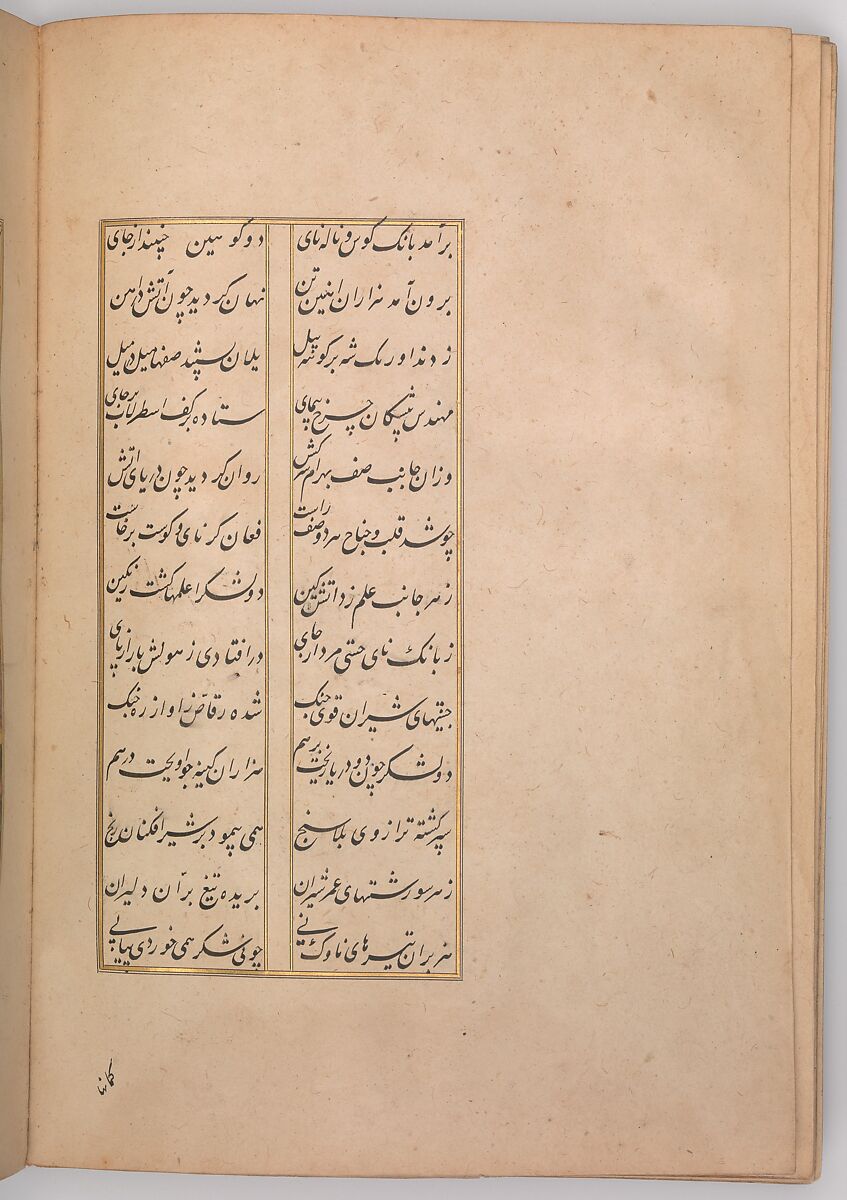 برآمد بانک کوس و ناله نای دو کوهین جنبند از جای
برون آمد هزاران آهنین تن نهان کردید چون آتش در آهن
زدند اورنک شه بر کوهه پیل یلان بستند صفها میل در میل
مهندس پیشکان چرخ پیمای ستاده بر کف اسطرلاب بر جای
وزان جانب صف بهرام سرکش روان کردید چون دریای آتش
چو شد قلب و جناح هر دو صف راست فغان کرنای و کوست برخاست
ز هر جانب علم زد آتش کین دو لشکر را علمها کشت رنکین
ز بانک نای جستی مرد از جای در افتادی ز هولش باز از پای
جنیبتهای شیران قوی جنک شده رقاص از آوازه جنک
دو لشکر چون دو دریا ریخت بر هم هزاران کینه جو آویخت در هم
سپر کشته ترازوی بلا سنج همی پیمود بر شیر افکنان رنج
ز هر سو رشتهای عمر شیران بریده تیغ بران دلیران
هزبران تیرهای ناوک نی چو نی شکر همی خوردی پیاپی
کمانها